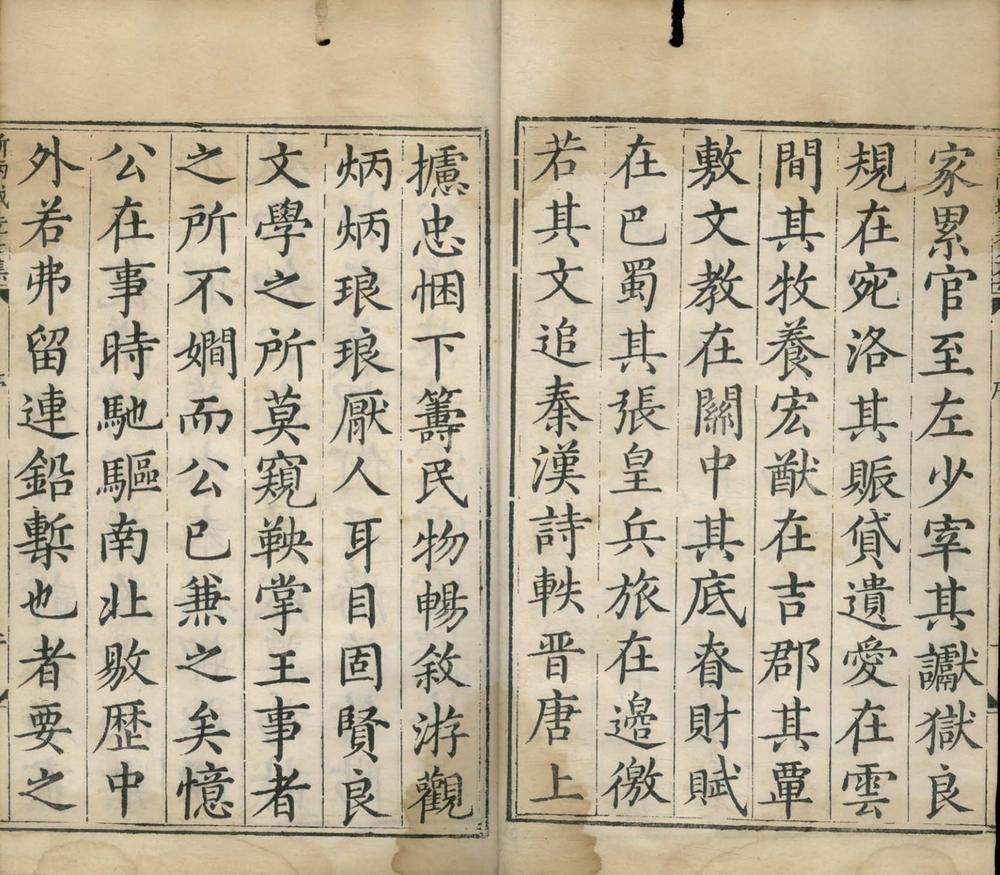 家累官至左少宰其讞獄良
規在宛洛其賑貸遺愛在雲
間其牧養宏猷在吉郡其覃
敷文教在關中其底昚財賦
在巴蜀其張皇兵旅在邊徼
若其文追秦漢詩軼晉唐上
攄忠悃下籌民物暢敘游觀
炳炳琅琅厭人耳目固賢良
文學之所莫窺鞅掌王事者
之所不嫺而公已兼之矣憶
公在事時馳驅南北敭歷中
外若弗留連鉛槧也者要之